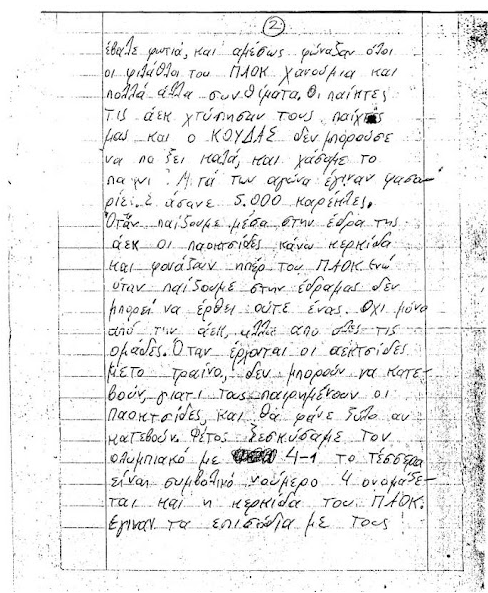 ②
έβαλε φωτιά, και αμέσως φώναξαν όλοι
οι φίλαθλοι του ΠΑΟΚ χανούμια και
πολλά άλλα συνθήματα. Οι παίκτες
της άεκ χτύπησαν τους παίχτες
μας και ο ΚΟΥΔΑΣ δεν μπορούσε
να παίξει καλά, και χάσαμε το
παιχνι. Μ τά των αγώνα έγιναν φασα-
ρίες. Σ άσανε 5.000 καρέκλες.
Όταν παίζουμε μέσα στην έδρα της
άεκ οι παοκτσίδες κάνω κερκίδα
και φονάζουν ηπέρ του ΠΑΟΚ. Ενώ
όταν παίζουμε στην έδραμας δεν
μπορεί να έρθει ούτε ένας. Όχι μόνο
από την άεκ, αλλά από όλες τις
ομάδες. Όταν έρχονται οι αεκτσίδες
μετο τραίνο, δεν μπορούν να κατε-
βούν, γιατί τους παιρημένουν οι
Παοκτσίδες, και θα φάνε ξύλο αν
κατεβούν. Φέτος ξεσκύσαμε τον
ολυμπιακό με 4-1 το τέσσερα
είναι συμβολικό νούμερο 4 ονομάζε-
ται και η κερκίδα του ΠΑΟΚ.
Έγιναν τα επισόδια με τους